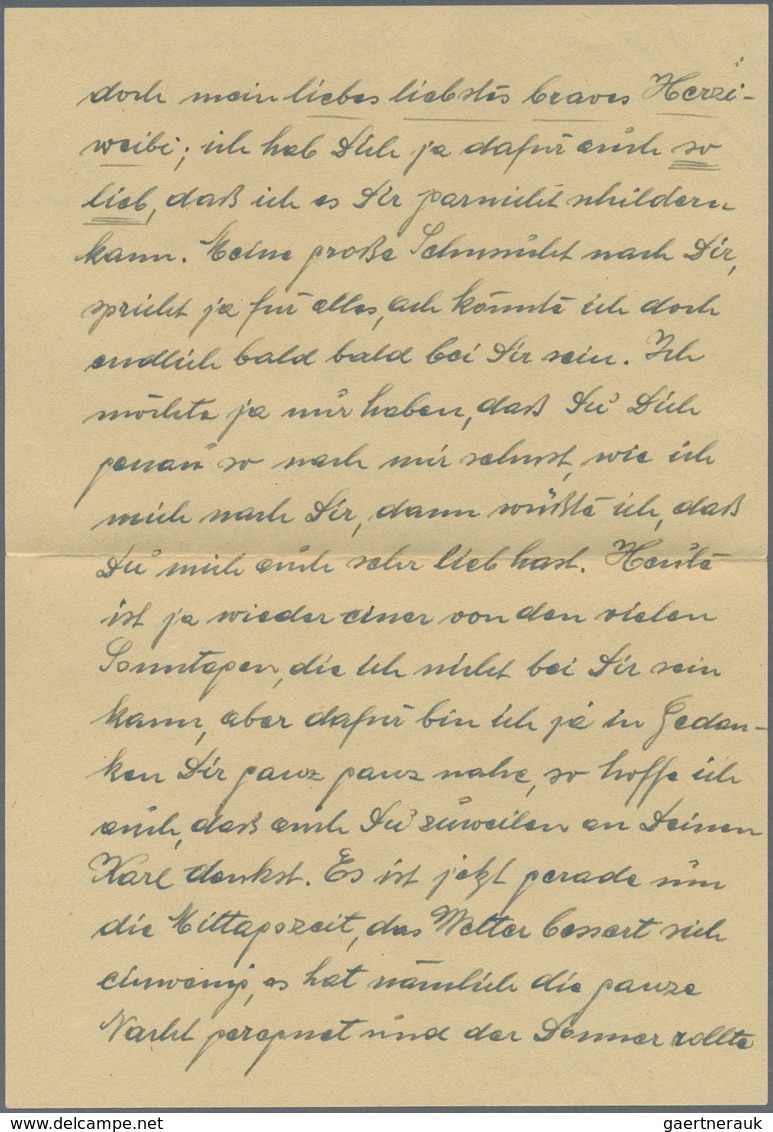 doch mein liebes liebstes braves Herzi-
weibi; ich hab Dich ja dafür auch so
lieb, daß ich es Dir garnicht schildern
kann. Meine große Sehnsucht nach Dir,
spricht ja für alles, ach könnte ich doch
endlich bald bald bei Dir sein. Ich
möchte ja nur haben, daß Du Dich
genau so nach mir sehnst, wie ich
mich nach Dir, dann wüßte ich, daß
Du mich auch sehr lieb hast. Heute
ist ja wieder einer von den vielen
Sonntagen, die ich nicht bei Dir sein
kann, aber dafür bin ich ja in Gedan-
ken Dir ganz ganz nahe, so hoffe ich
auch, daß auch Du zuweilen an Deinen
Karl denkst. Es ist jetzt gerade um
die Mittagszeit, das Wetter bessert sich
einwenig, es hat nämlich die ganze
Nacht geregnet und der Donner rollte
delcampe.net
gaertnerauk